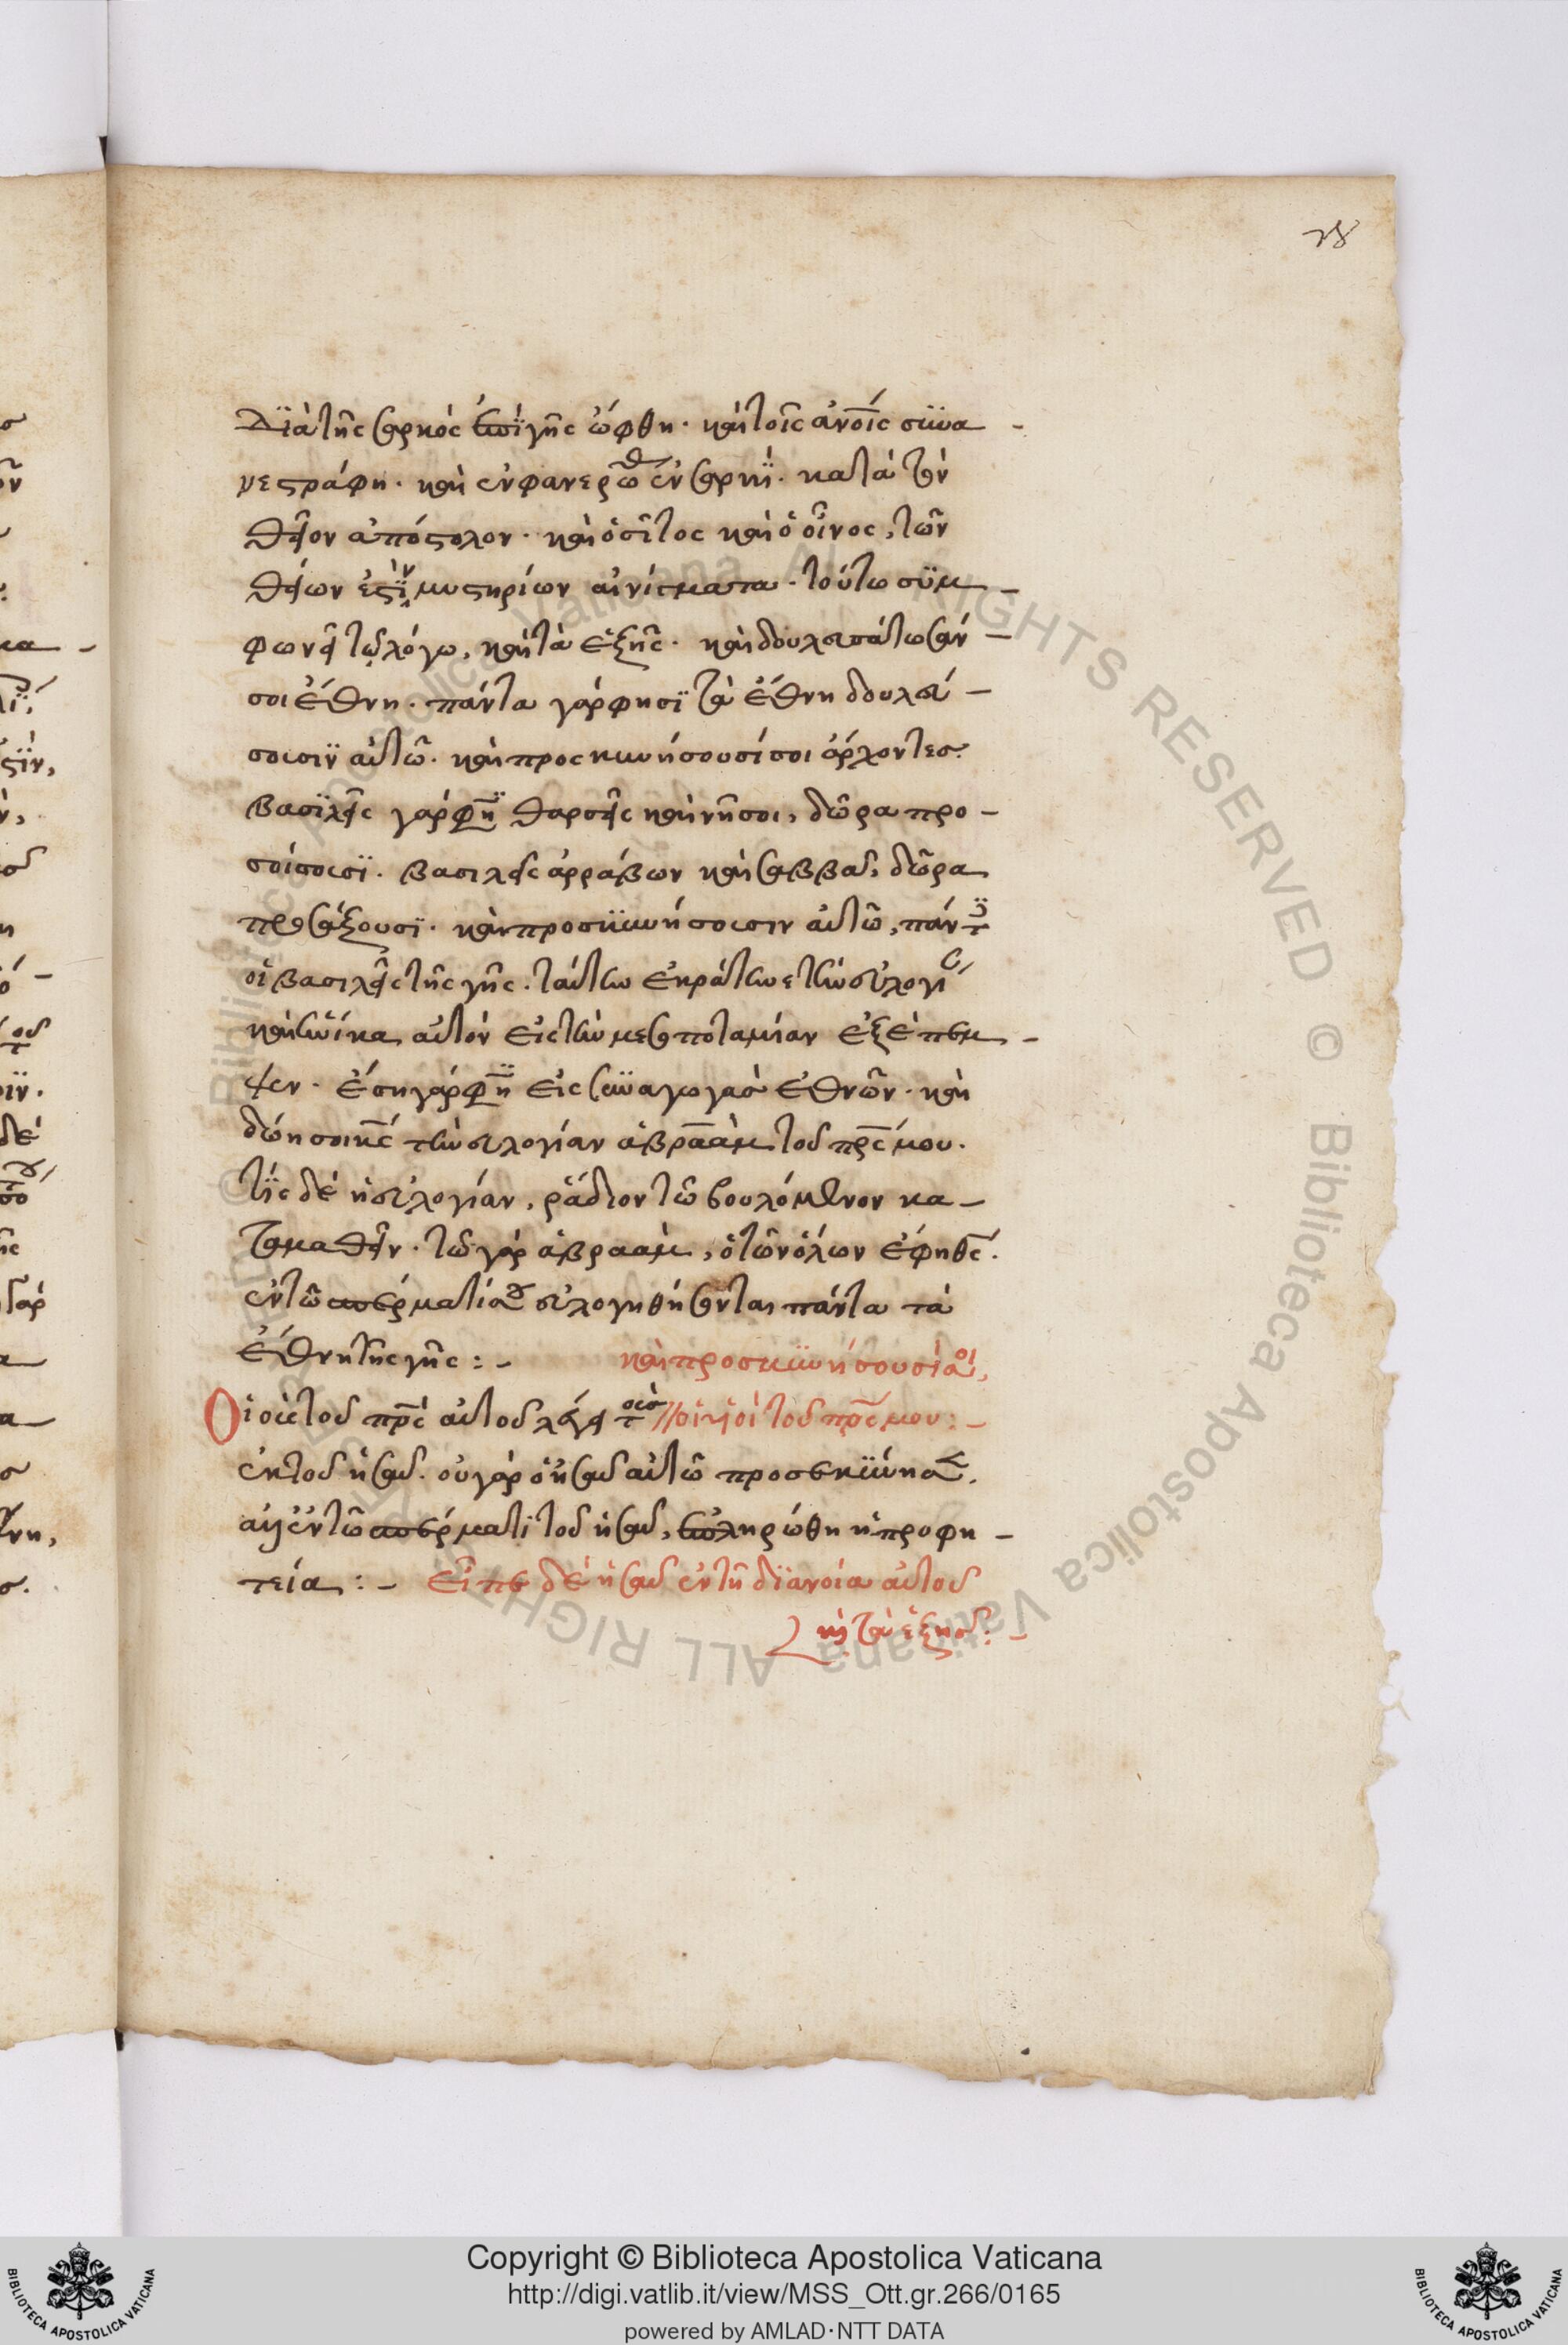 28
Δϊὰ τῆς σαρκὸς ἐπΐ γῆς ὤφθη· καὶ τοῖς ἀν̅ο̅ι̅ς συνα-
νεστράφη· καὶ ἐνφανερώθ ἐν σαρκΐ· κατὰ τὸν
θεῖον ἀπόστολον· καὶ ὁ σῖτος καὶ ὁ οἶνος, τῶν
θείων ἐστῒν μυστηρίων αἰνίγματα· τούτω σϋμ-
φωνεῖ τῷ λόγω, καὶ τὰ ἑξῆς· καὶ δουλευσάτωσάν-
σοι ἔθνη· πάντα γάρ φησϊ τὰ ἔθνη δουλεύ-
σουσιν αὐτῶ· καὶ προσκυνήσουσί σοι ἄρχοντες·
βασϊλεῖς γάρ φη̅ θαρσεῖς καὶ νῆσοι, δῶρα προ-
σοίσουσϊ· βασιλεῖς ἀρράβων καὶ σαββᾶ, δῶρα
προσάξουσϊ· καὶ προσκυνήσουσιν αὐτῶ, πάντ
οἱ βασιλεῖς τῆς γῆς· ταύτην ἐκράτυνε τὴν εὐλογί
καὶ ἡνίκα αὐτὸν εἰς τὴν μεσοποταμίαν ἐξέπεμ-
ψεν· ἔση γάρ φη̅ εἰς συναγωγὰς ἐθνῶν· καὶ
δώη σοι κ̅ς τὴν εὐλογίαν ἀβραὰμ τοῦ π̅ρ̅ς μου·
τίς δὲ ἡ εὐλογίαν, ῥάδιον τῶ βουλόμενον κα-
ταμαθεῖν· τῶ γὰρ ἀβραὰμ, ὁ τῶν ὅλων ἔφη θ̅ς·
ἐν τῶ σπέρματί σου εὐλογηθήσονται πάντα τὰ
ἔθνη τῆς γῆς:- καὶ προσκϋνήσουσί σοι,
Οἱ υἱοὶ τοῦ π̅ρ̅ς αὐτοῦ λέγει τοὺσ // οἱ υἱοὶ τοῦ π̅ρ̅ς μου:-
ἐκ τοῦ ἡσαῦ· οὐ γὰρ ὁ ἡσαῦ αὐτῶ προσεκΰνησ.
ἀλλ' ἐν τῶ σπέρματι τοῦ ἡσαῦ, ἐπληρώθη ἡ προφη-
τεία:- εἶπε δὲ ἡσαῦ ἐν τῆ δϊανοία αὐτοῦ
καὶ τὰ ἑξῆς:-
Copyright © Biblioteca Apostolica Vaticana
http://digi.vatlib.it/view/MSS_Ott.gr.266/0165
powered by AMLAD·NTT DATA